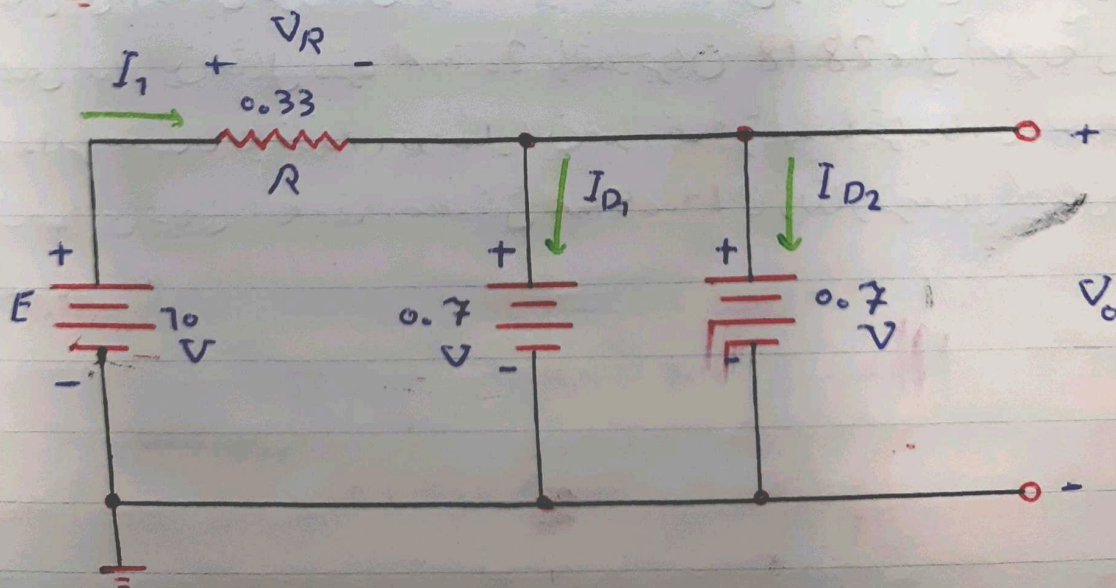 V_R
I_1 + -
0.33
R
I_D1 I_D2
+ + + +
E 10 V 0.7 V 0.7 V V_o
- - - -